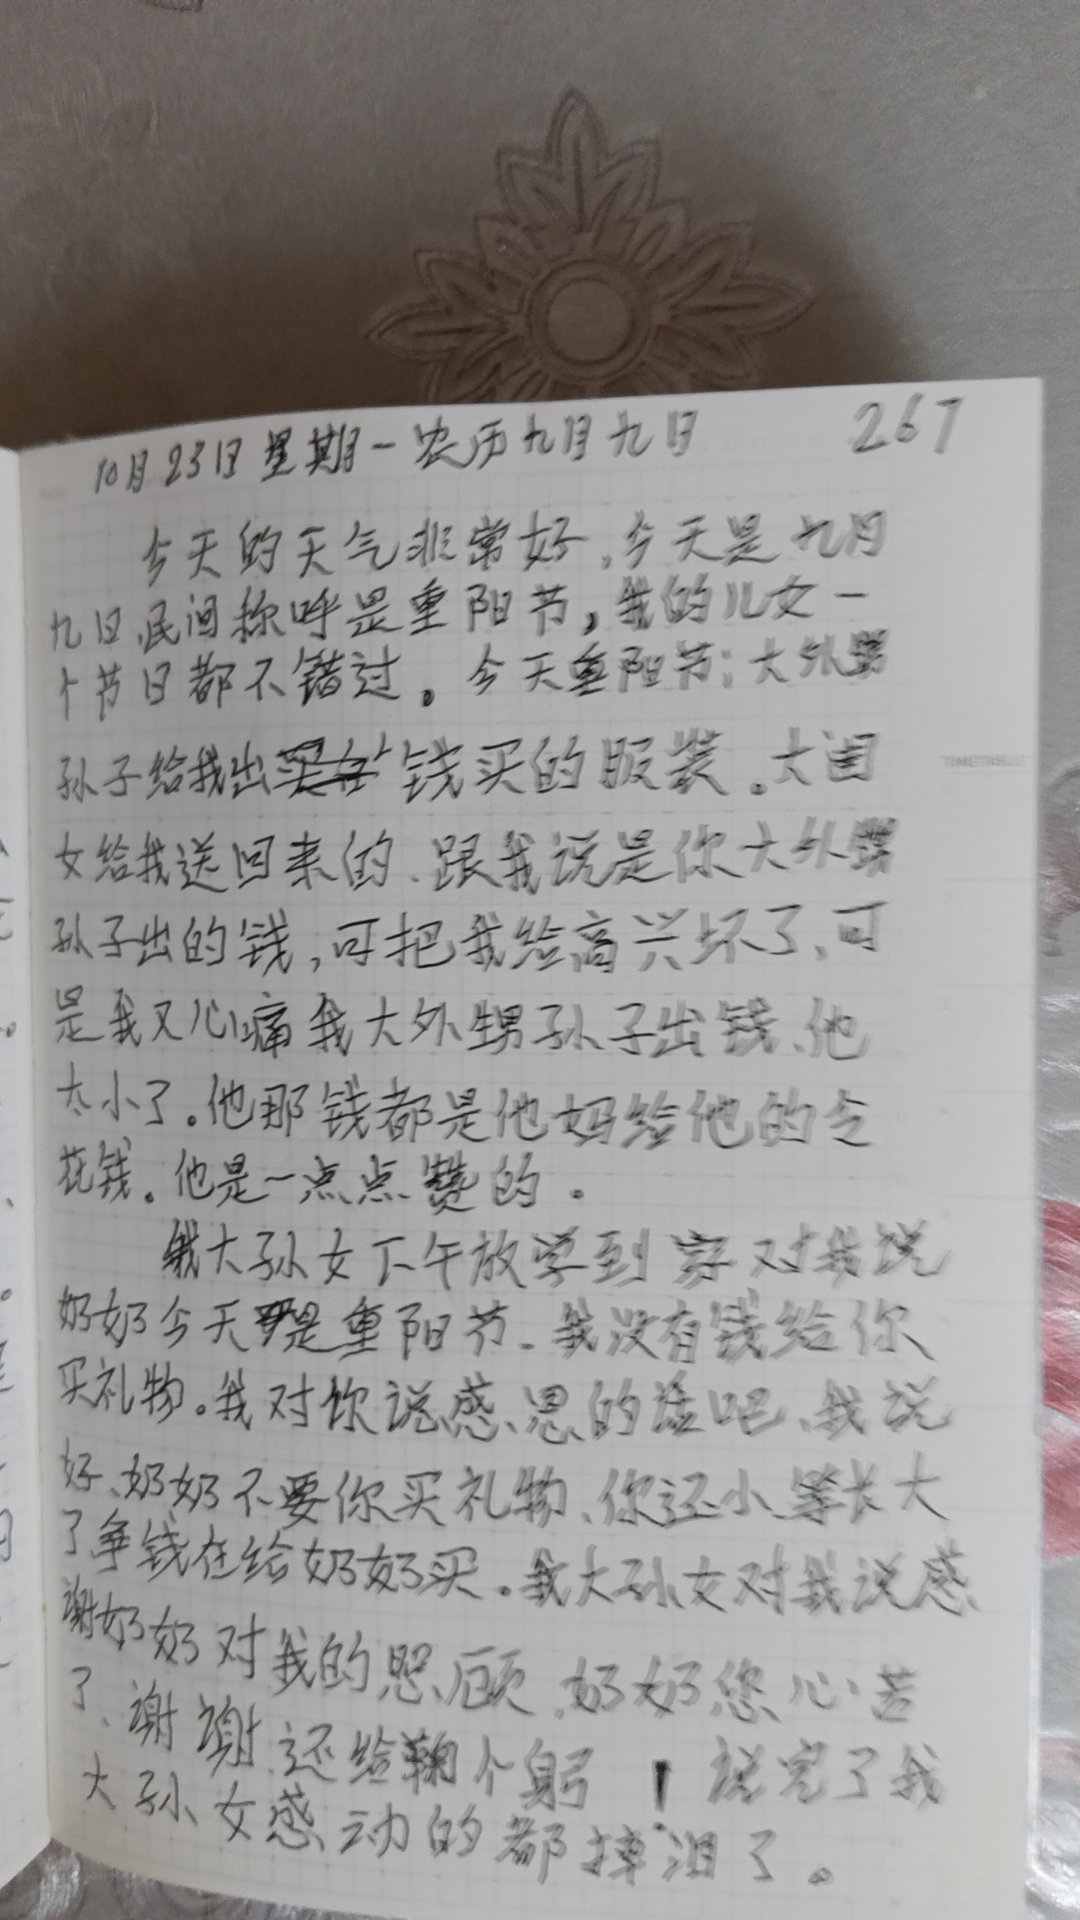 10月23日星期一农历九月九日 267
今天的天气非常好,今天是九月
九日、民间称呼是重阳节,我的儿女一
个节日都不错过。今天重阳节:大外甥
孙子给我出钱买的服装。大闺
女给我送回来的、跟我说是你大外甥
孙子出的钱,可把我给高兴坏了、可
是我又心痛我大外甥孙子出钱、他
太小了。他那钱都是他妈给他的令
花钱。他是一点点赞的。
TIMETABLE
我大孙女下午放学到家对我说
奶奶今天是重阳节、我没有钱给你
买礼物。我对你说感恩的话吧、我说
好、奶奶不要你买礼物、你还小、等长大
了争钱在给奶奶买。我大孙女对我说感
谢奶奶对我的照顾、奶奶您心苦
了、谢谢、还给鞠个躬！说完了我
大孙女感动的都掉泪了。